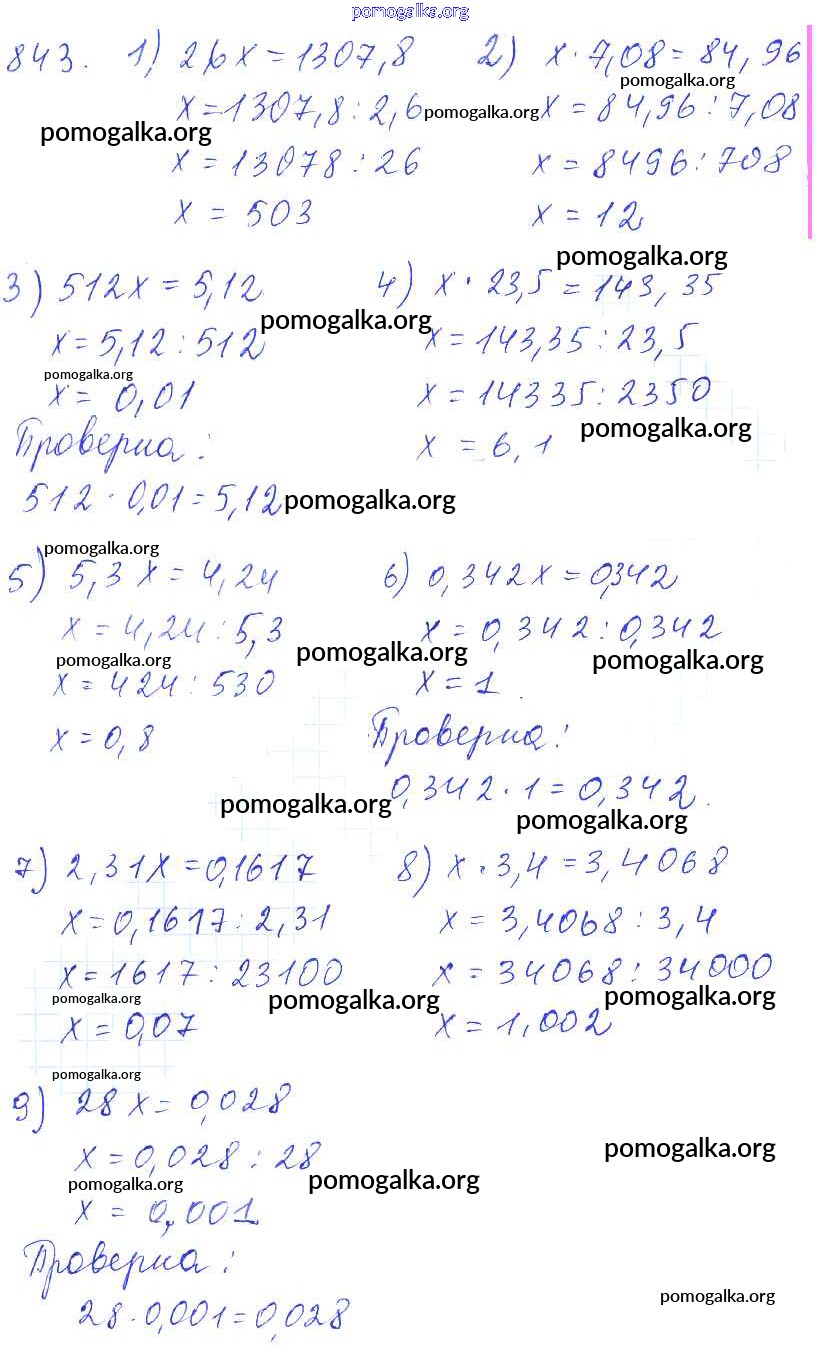 pomogalka.org
843. 1) 2,6x = 1307,8 2) x · 7,08 = 84,96
pomogalka.org
x = 1307,8 : 2,6 pomogalka.org x = 84,96 : 7,08
pomogalka.org
x = 13078 : 26 x = 8496 : 708
x = 503 x = 12
pomogalka.org
3) 512x = 5,12 4) x · 23,5 = 143,35
pomogalka.org
x = 5,12 : 512 x = 143,35 : 23,5
pomogalka.org
x = 0,01 x = 14335 : 2350
pomogalka.org
Проверка: x = 6,1
512 · 0,01 = 5,12 pomogalka.org
pomogalka.org
5) 5,3x = 4,24 6) 0,342x = 0,342
x = 4,24 : 5,3 x = 0,342 : 0,342
pomogalka.org pomogalka.org pomogalka.org
x = 424 : 530 x = 1
x = 0,8 Проверка:
0,342 · 1 = 0,342.
pomogalka.org pomogalka.org
7) 2,31x = 0,1617 8) x · 3,4 = 3,4068
x = 0,1617 : 2,31 x = 3,4068 : 3,4
x = 1617 : 23100 x = 34068 : 34000
pomogalka.org pomogalka.org pomogalka.org
x = 0,07 x = 1,002
pomogalka.org
9) 28x = 0,028
x = 0,028 : 28 pomogalka.org
pomogalka.org pomogalka.org
x = 0,001
Проверка:
28 · 0,001 = 0,028 pomogalka.org